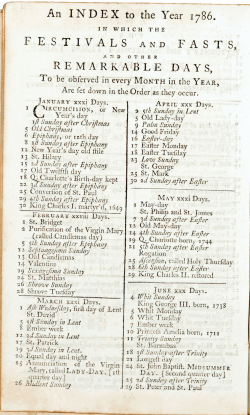 An INDEX to the Year 1786.
IN WHICH THE
FESTIVALS AND FASTS,
AND OTHER
REMARKABLE DAYS,
To be observed in every MONTH in the YEAR,
Are set down in the Order as they occur.
JANUARY xxxi Days.
1 CIRCUMCISION, or New
Year's day
1st Sunday after Christmas
5 Old Christmas
6 Epiphany, or 12th day
8 1st Sunday after Epiphany
12 New Year's day old stile
13 St. Hilary
15 2d Sunday after Epiphany
17 Old Twelfth day
18 Q. Charlotte's Birth-day kept
22 3d Sunday after Epiphany
25 Conversion of St. Paul
29 4th Sunday after Epiphany
30 King Charles I. martyr'd, 1649
FEBRUARY xxviii Days.
1 St. Bridget
2 Purification of the Virgin Mary
(called Candlemas day)
5 5th Sunday after Epiphany
12 Septuagesima Sunday
13 Old Candlemas
14 Valentine
19 Sexagesima Sunday
24 St. Matthias
26 Shrove Sunday
28 Shrove Tuesday
MARCH xxxi Days.
1 Ash Wednesday, first day of Lent
St. David
5 1st Sunday in Lent
8 Ember week
12 2d Sunday in Lent
17 St. Patrick
19 3d Sunday in Lent.
20 Equal day and night
25 Annunciation of the Virgin
Mary, called LADY-DAY. [1st
quarter day]
26 Midlent Sunday
APRIL xxx Days.
2 5th Sunday in Lent
5 Old Lady-day
9 Palm Sunday
14 Good Friday
16 Easter-day
17 Easter Monday
18 Easter Tuesday
23 Low Sunday
St. George
25 St. Mark
30 2d Sunday after Easter
MAY xxxi Days.
1 May-day
St. Philip and St. James
7 3d Sunday after Easter
12 Old May-day
14 4th Sunday after Easter
19 Q. Charlotte born, 1744
21 5th Sunday after Easter
Rogation
25 Ascension, called Holy Thursday
28 6th Sunday after Easter
29 King Charles II. restored
JUNE xxx Days.
4 Whit Sunday
King George III. born, 1738
5 Whit Monday
6 Whit Tuesday
7 Ember week
10 Princess Amelia born, 1711
11 Trinity Sunday
St. Barnabas
18 1st Sunday after Trinity
21 Longest day
24 St. John Baptist. MIDSUMMER
DAY. [second quarter day]
25 2d Sunday after Trinity
29 St. Peter and St. Paul